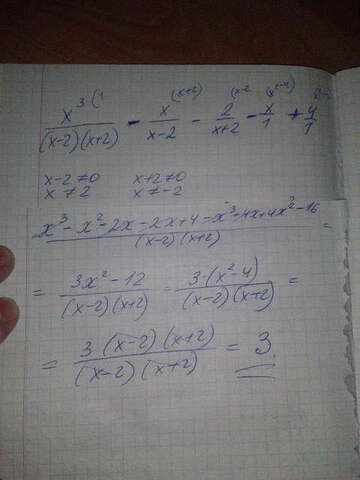 x³ (1 / (x-2)(x+2) - x (x+2) / x-2 - 2 (x-2 / x+2 - x (x²-4) / 1 + 4 / 1
x-2≠0 x+2≠0
x≠2 x≠-2
x³-x²-2x-2x+4-x³+4x+4x²-16 / (x-2)(x+2) =
= 3x²-12 / (x-2)(x+2) = 3·(x²-4) / (x-2)(x+2) =
= 3(x-2)(x+2) / (x-2)(x+2) = 3.